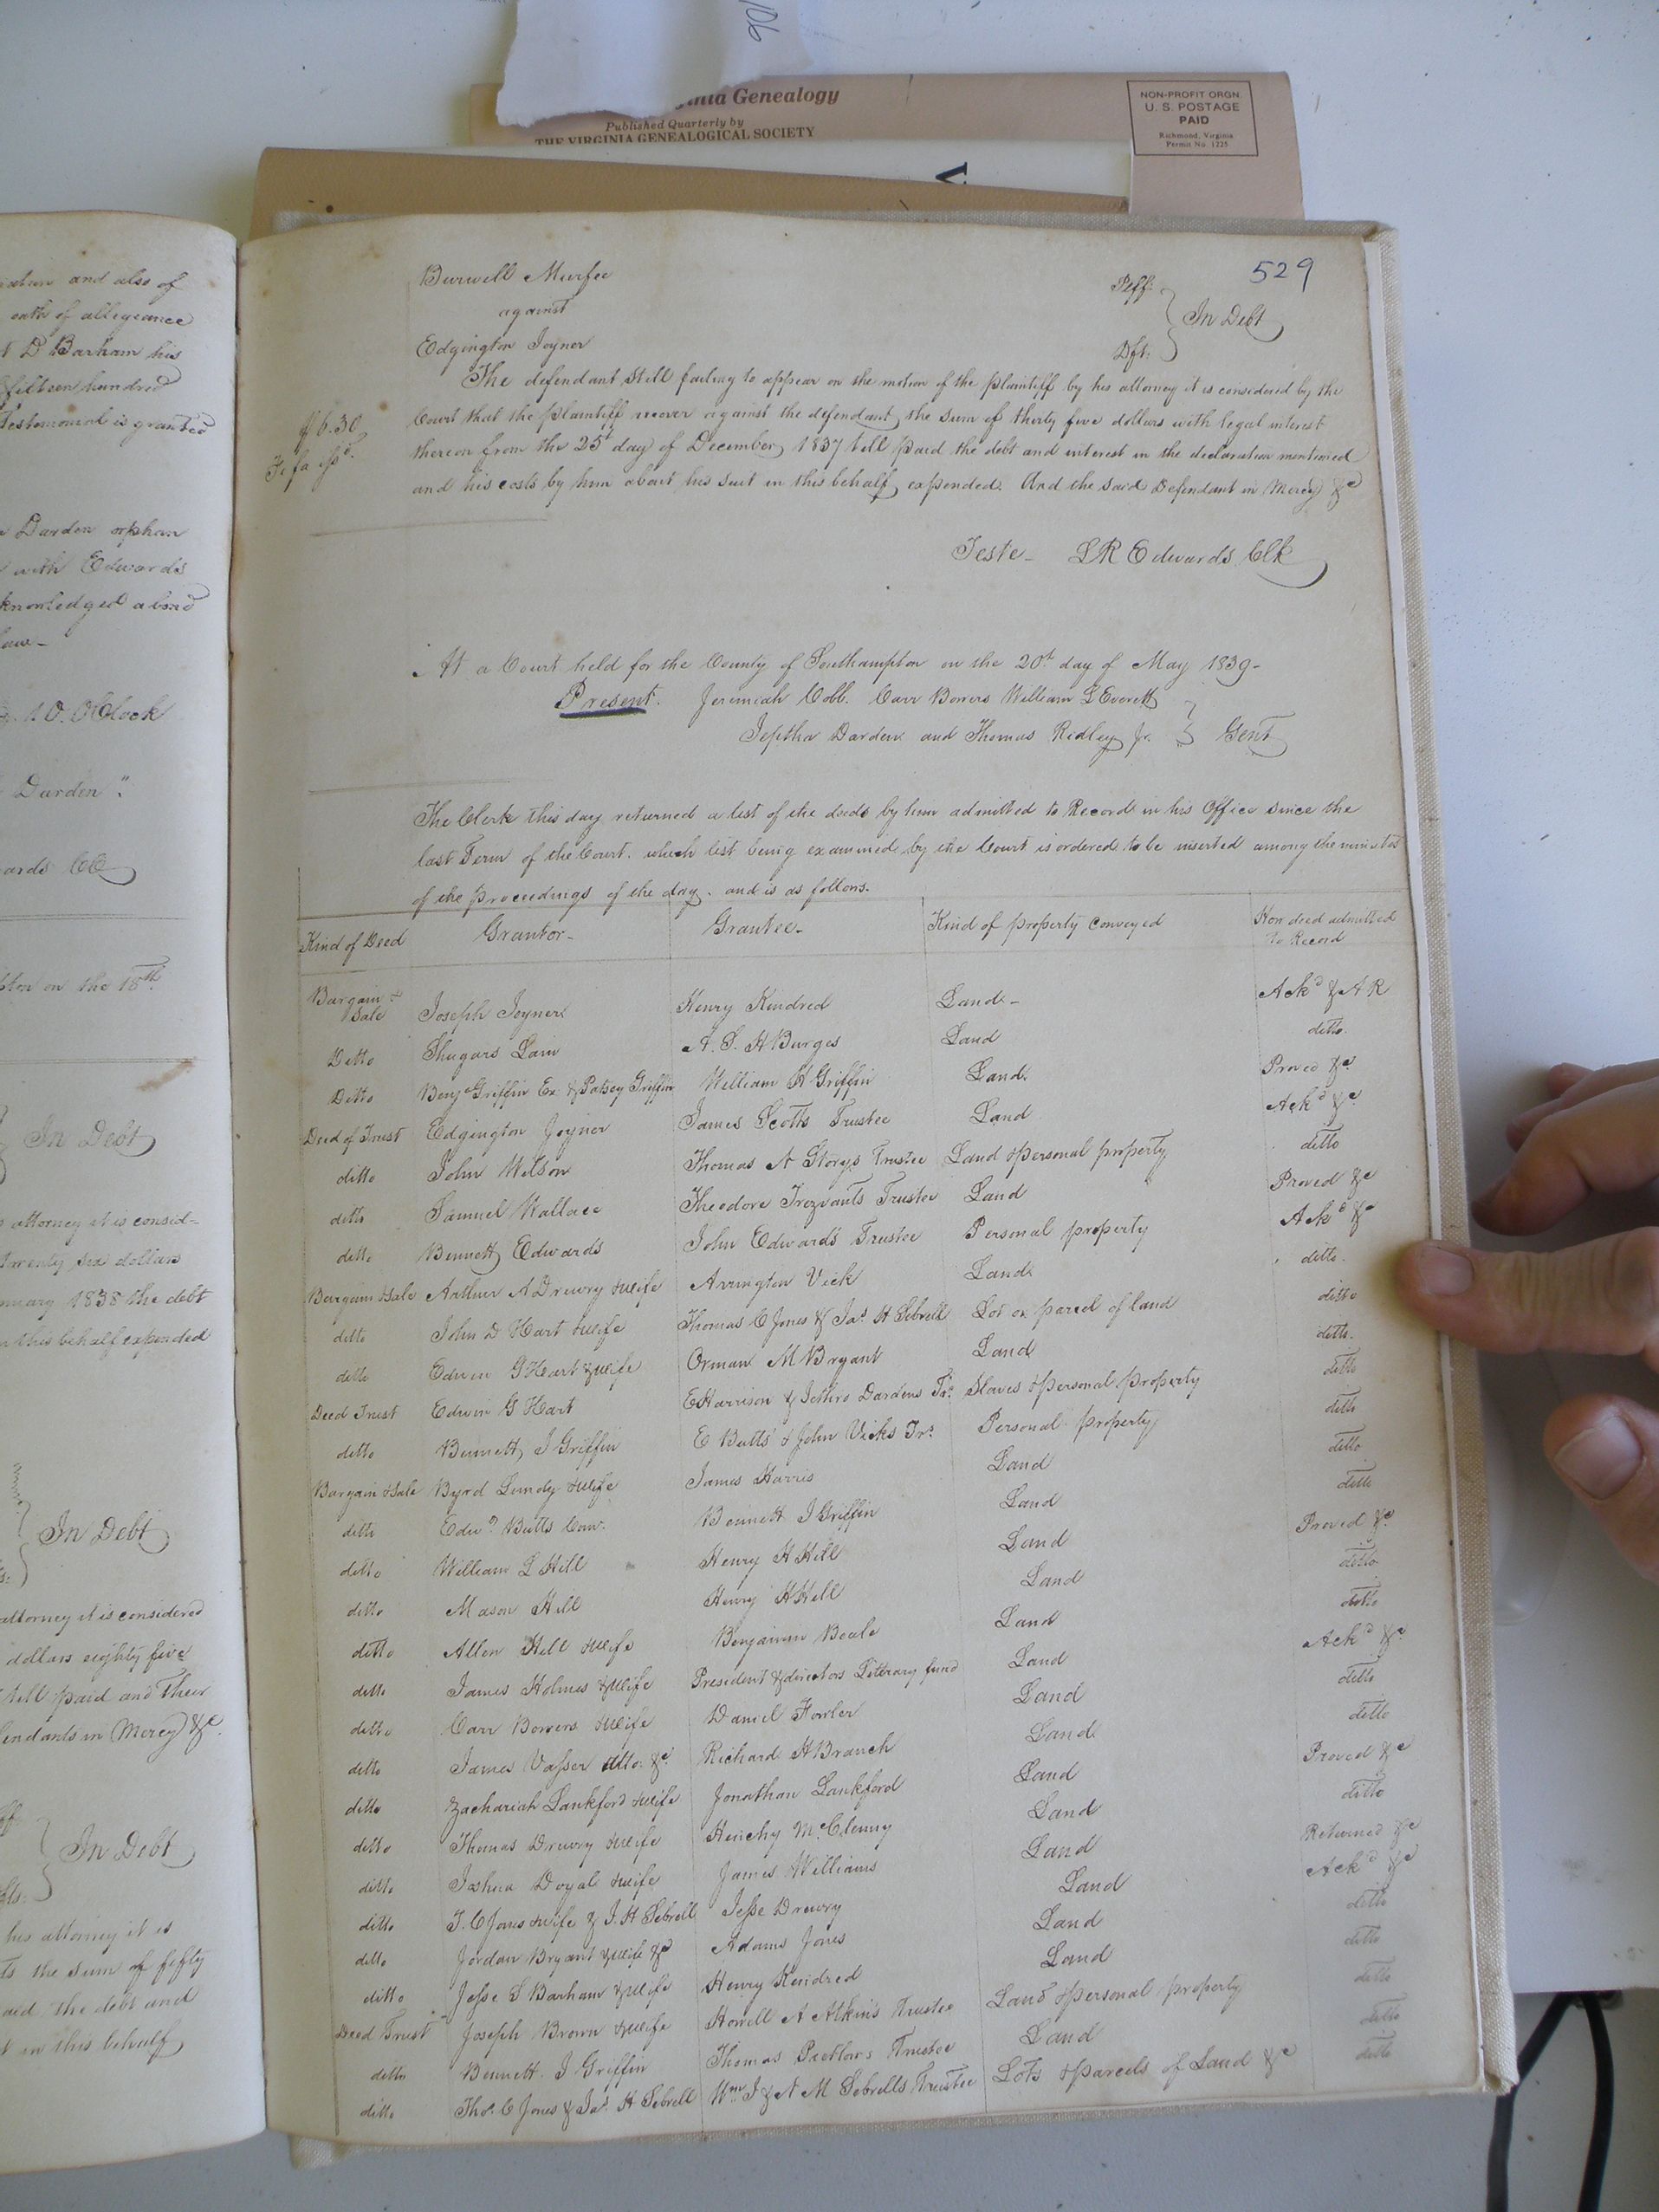 106
Virginia Genealogy
Published Quarterly by
THE VIRGINIA GENEALOGICAL SOCIETY
NON-PROFIT ORGN.
U. S. POSTAGE
PAID
Richmond, Virginia
Permit No. 1225
V
and also of
oath of allegiance
D Barham his
fifteen hundred
Testamonial is granted
Darden orphan
with Edwards
knowledged a bond
law-
10. OClock
Darden".
ards CC
on the 18th
In Debt
attorney it is consid-
twenty six dollars
nuary 1838 the debt
in this behalf expended
In Debt
attorney it is considered
dollars eighty five
till paid and their
endants in Mercy &c.
In Debt
his attorney it is
the sum of fifty
aid the debt and
t in this behalf
529
Burwell Murfee Plff.
against In Debt
Edgington Joyner Dft.
The defendant still failing to appear on the motion of the plaintiff by his attorney it is considered by the
$6.30 Court that the plaintiff recover against the defendant the sum of thirty five dollars with legal interest
Fi fa issd. thereon from the 25t day of December 1837 till paid the debt and interest in the declaration mentioned
and his costs by him about his suit in this behalf expended. And the said Defendant in Mercy &c
Teste- LR Edwards Clk
At a Court held for the County of Southampton on the 20th day of May 1839-
Present. Jeremiah Cobb. Carr Bowers William L Everett
Jeptha Darden and Thomas Ridley Jr. Gent
The Clerk this day returned a list of the deeds by him admitted to Record in his Office since the
last Term of the Court. which list being examined by the Court is ordered to be inserted among the minutes
of the proceedings of the day. and is as follows.
Kind of Deed Grantor- Grantee- Kind of property conveyed How deed admitted to Record
Bargain & Sale Joseph Joyner Henry Kindred Land- Ackd & AR
Ditto Shugars Lain A. S. H Burges Land ditto
Ditto Benja Griffin Ex & Patsey Griffin William H Griffin Land. Proved &c
Deed of Trust Edgington Joyner James Scotts Trustee Land Ackd &c
ditto John Wilson Thomas N Storys Trustee Land & personal property ditto
ditto Samuel Wallace Theodore Trezvants Trustee Land Proved &c
ditto Bennett Edwards John Edwards Trustee Personal property Ackd &c
Bargain & Sale Arthur A Drewry & wife Arrington Vick Land ditto
ditto John D Hart & wife Thomas C Jones & Jas H Sebrell Lot or parcel of land ditto
ditto Edwin G Hart & wife Orman M Bryant Land ditto.
Deed Trust Edwin G Hart E Harrison & Jethro Dardens Trs Slaves & personal property ditto
ditto Bennett J Griffin E Butts & John Vicks Trs. Personal property ditto
Bargain & Sale Byrd Lundy & wife James Harris Land ditto
ditto Edwd. Butts Com. Bennett J Griffin Land ditto
ditto William L Hill Henry H Hill Land Proved &c
ditto Mason Hill Henry H Hill Land ditto
ditto Allen Hill & wife Benjamin Beale Land ditto
ditto James Holmes & wife President & directors Literary fund Land Ackd &c
ditto Carr Bowers & wife Daniel Fowler Land ditto
ditto James Vasser atto. &c Richard H Branch Land ditto
ditto Zachariah Lankford & wife Jonathan Lankford Land Proved &c
ditto Thomas Drewry & wife Hinchy McClenny Land ditto
ditto Joshua Doyal & wife James Williams Land Returned &c
ditto T. C Jones & wife & J. H Sebrell Jesse Drewry Land Ackd &c
ditto Jordan Bryant & wife &c Adams Jones Land ditto
ditto Jesse S Barham & wife Henry Kindred Land ditto
Deed Trust Joseph Brown & wife Howell A Atkins Trustee Land & personal property ditto
ditto Bennett. J Griffin Thomas Pretlars Trustee Land ditto
ditto Thos. C Jones & Jas. H Sebrell Wm J & N M Sebrells Trustee Lots & parcels of Land &c ditto